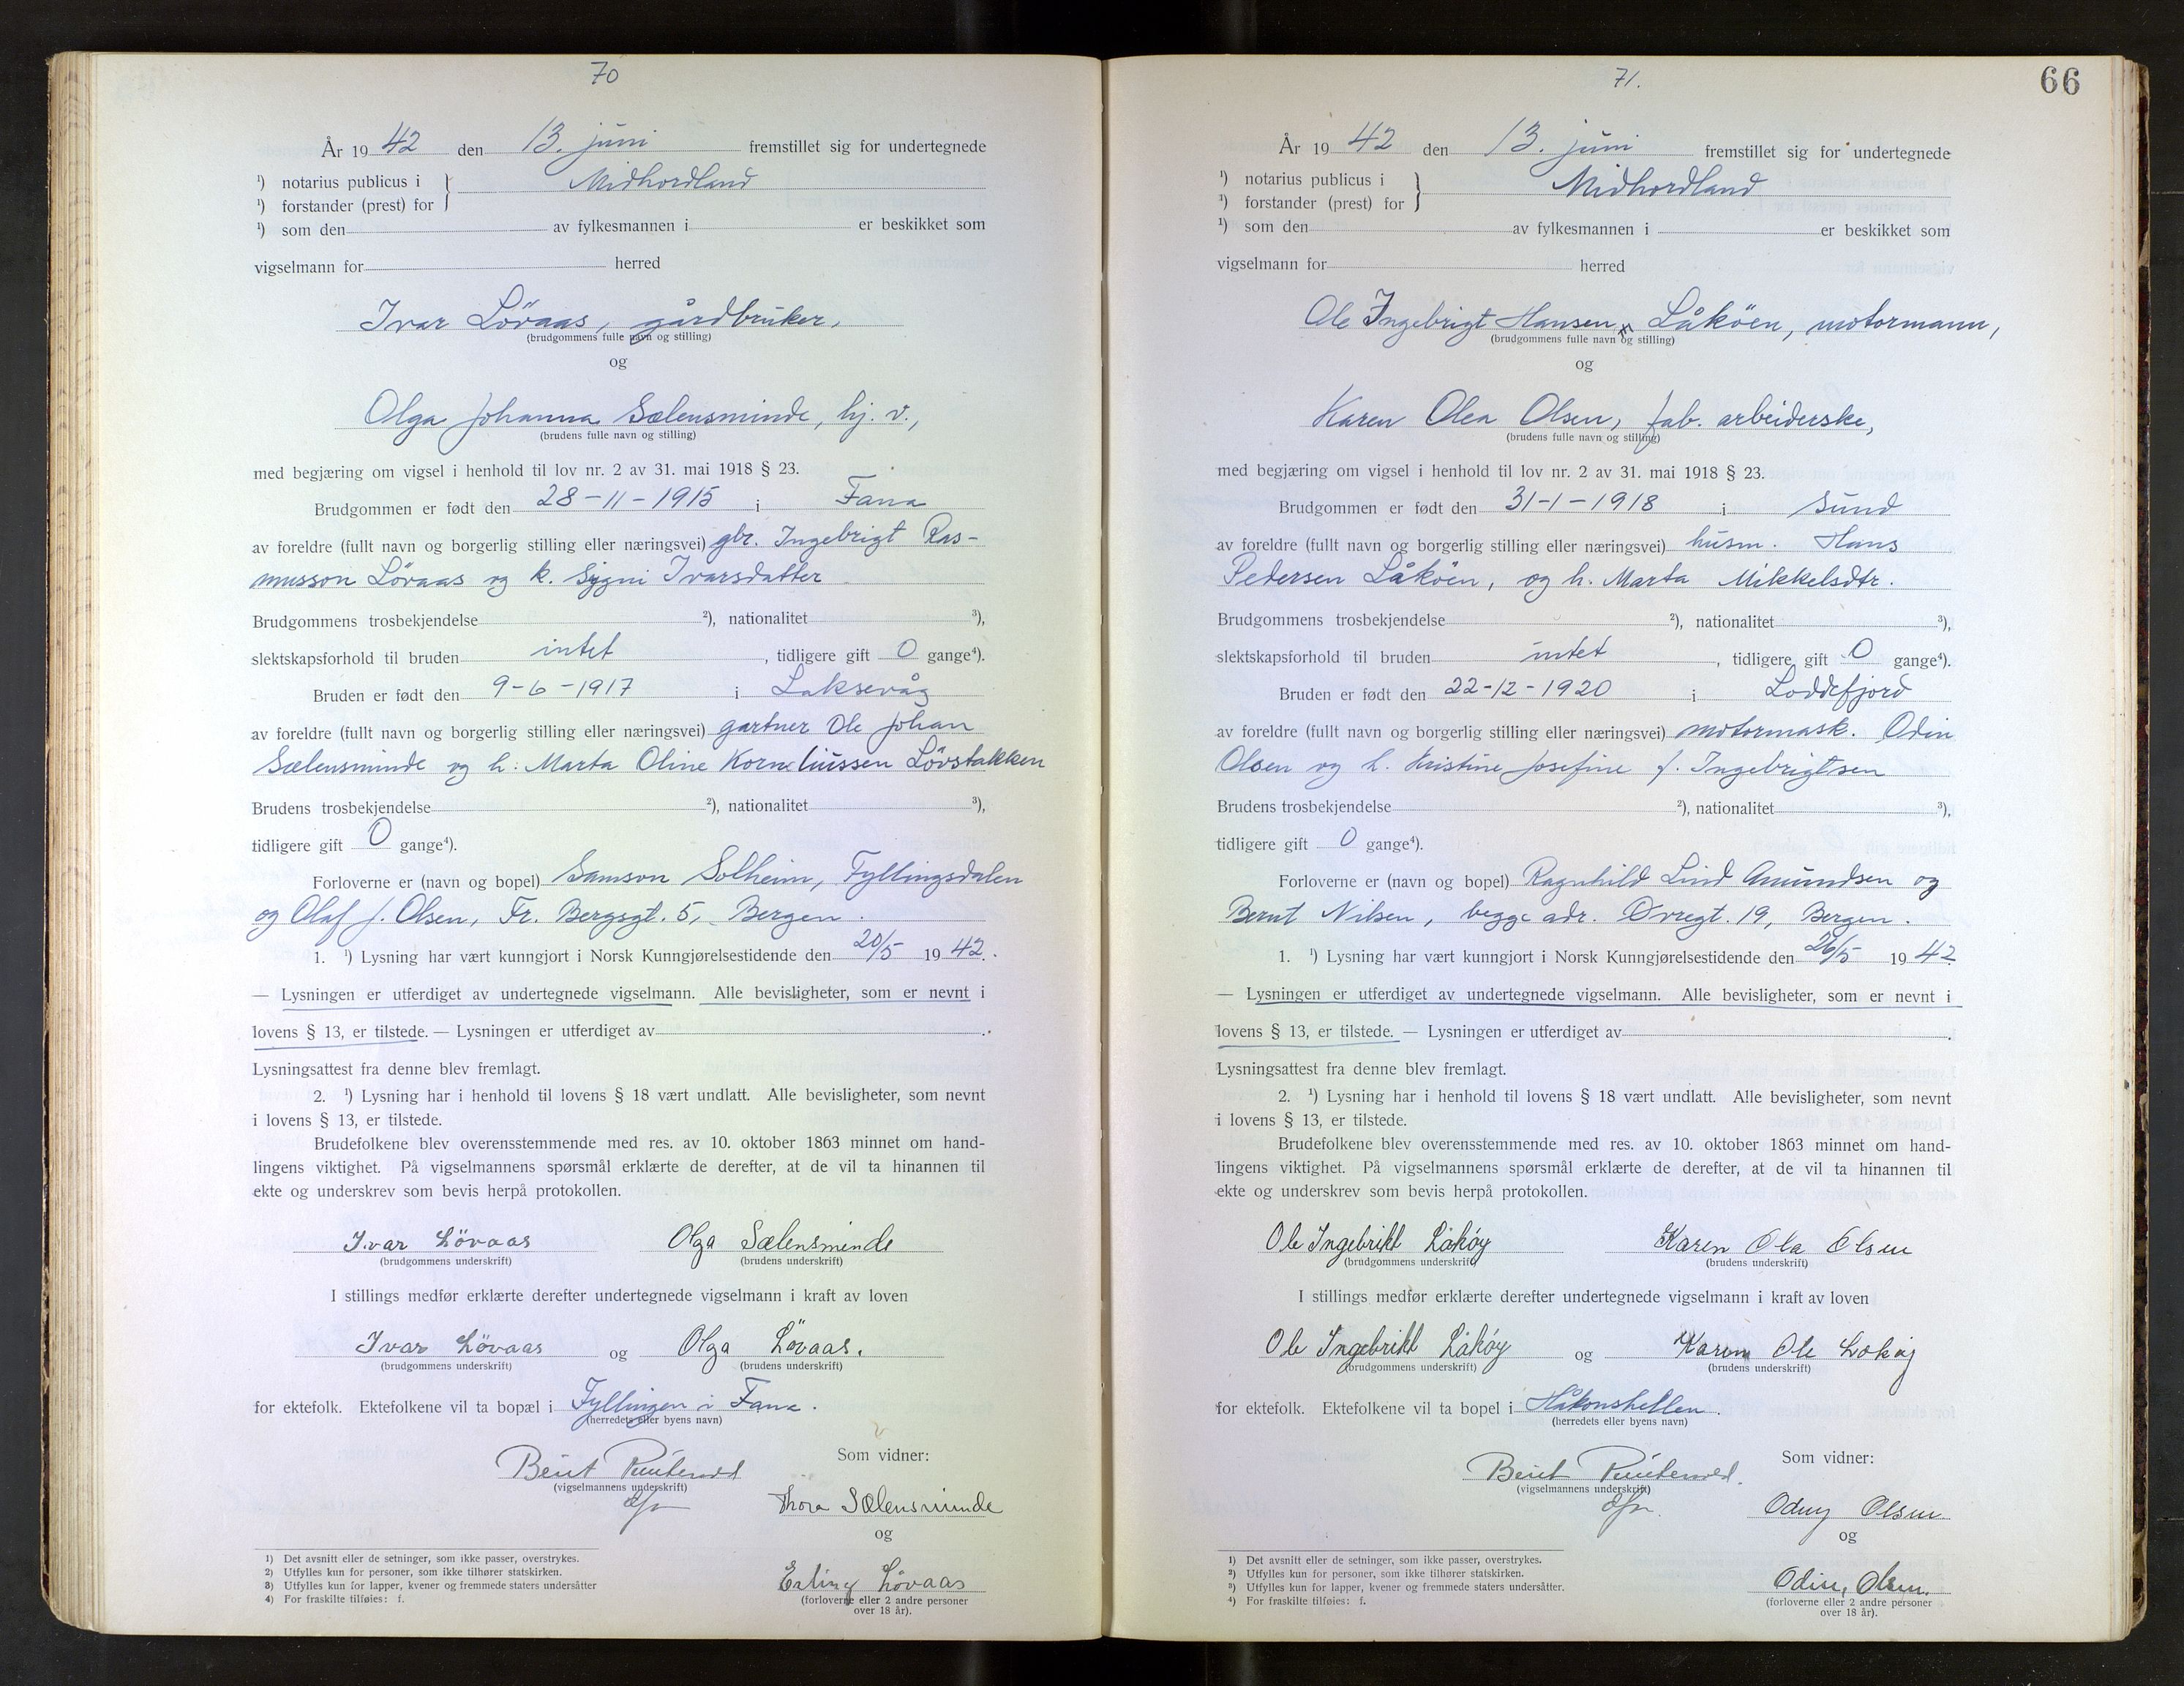 70
År 19 42 den 13. juni fremstillet sig for undertegnede
¹) notarius publicus i } Midhordland
¹) forstander (prest) for
¹) som den av fylkesmannen i er beskikket som
vigselmann for herred
Ivar Lövaas, gårdbruker,
(brudgommens fulle navn og stilling)
og
Olga Johanna Sælensminde, hj. v.,
(brudens fulle navn og stilling)
med begjæring om vigsel i henhold til lov nr. 2 av 31. mai 1918 § 23.
Brudgommen er født den 28-11-1915 i Fana
av foreldre (fullt navn og borgerlig stilling eller næringsvei) gbr. Ingebrigt Ras-
musson Lövaas og k. Sygni Ivarsdatter
Brudgommens trosbekjendelse ²), nationalitet ³),
slektskapsforhold til bruden intet, tidligere gift 0 gange⁴).
Bruden er født den 9-6-1917 i Laksevåg
av foreldre (fullt navn og borgerlig stilling eller næringsvei) gartner Ole Johan
Sælensminde og h. Marta Oline Korneliussen Lövstakken
Brudens trosbekjendelse ²), nationalitet ³),
tidligere gift 0 gange⁴).
Forloverne er (navn og bopel) Samson Solheim, Fyllingsdalen
og Olaf J. Olsen, Fr. Bergsgt. 5, Bergen.
1. ¹) Lysning har vært kunngjort i Norsk Kunngjørelsestidende den 20/5 19 42.
— Lysningen er utferdiget av undertegnede vigselmann. Alle bevisligheter, som er nevnt i
lovens § 13, er tilstede. — Lysningen er utferdiget av
Lysningsattest fra denne blev fremlagt.
2. ¹) Lysning har i henhold til lovens § 18 vært undlatt. Alle bevisligheter, som nevnt
i lovens § 13, er tilstede.
Brudefolkene blev overensstemmende med res. av 10. oktober 1863 minnet om hand-
lingens viktighet. På vigselmannens spørsmål erklærte de derefter, at de vil ta hinannen til
ekte og underskrev som bevis herpå protokollen.
Ivar Lövaas Olga Sælensminde
(brudgommens underskrift) (brudens underskrift)
I stillings medfør erklærte derefter undertegnede vigselmann i kraft av loven
Ivar Lövaas og Olga Lövaas.
(brudgommens underskrift) (brudens underskrift)
for ektefolk. Ektefolkene vil ta bopæl i Fyllingen i Fana.
(herredets eller byens navn)
Som vidner:
Berit
(vigselmannens underskrift)
Thora Sælensminde
og
Erling Lövaas
(forloverne eller 2 andre personer
over 18 år).
¹) Det avsnitt eller de setninger, som ikke passer, overstrykes.
²) Utfylles kun for personer, som ikke tilhører statskirken.
³) Utfylles kun for lapper, kvener og fremmede staters undersåtter
⁴) For fraskilte tilføies: f.
71.
66
År 19 42 den 13. juni fremstillet sig for undertegnede
¹) notarius publicus i } Midhordland
¹) forstander (prest) for
¹) som den av fylkesmannen i er beskikket som
vigselmann for herred
Ole Ingebrigt Hansen Låköen, motormann,
(brudgommens fulle navn og stilling)
og
Karen Olea Olsen, fab. arbeiderske,
(brudens fulle navn og stilling)
med begjæring om vigsel i henhold til lov nr. 2 av 31. mai 1918 § 23.
Brudgommen er født den 31-1-1918 i Sund
av foreldre (fullt navn og borgerlig stilling eller næringsvei) husm. Hans
Pedersen Låköen, og h. Marta Mikkelsdtr.
Brudgommens trosbekjendelse ²), nationalitet ³),
slektskapsforhold til bruden intet, tidligere gift 0 gange⁴).
Bruden er født den 22-12-1920 i Loddefjord
av foreldre (fullt navn og borgerlig stilling eller næringsvei) motormask. Odin
Olsen og h. Kristine Josefine f. Ingebrigtsen
Brudens trosbekjendelse ²), nationalitet ³),
tidligere gift 0 gange⁴).
Forloverne er (navn og bopel) Ragnhild Lind Amundsen og
Bernt Nilsen, begge adr. Øvregt. 19, Bergen.
1. ¹) Lysning har vært kunngjort i Norsk Kunngjørelsestidende den 26/5 19 42
— Lysningen er utferdiget av undertegnede vigselmann. Alle bevisligheter, som er nevnt i
lovens § 13, er tilstede. — Lysningen er utferdiget av
Lysningsattest fra denne blev fremlagt.
2. ¹) Lysning har i henhold til lovens § 18 vært undlatt. Alle bevisligheter, som nevnt
i lovens § 13, er tilstede.
Brudefolkene blev overensstemmende med res. av 10. oktober 1863 minnet om hand-
lingens viktighet. På vigselmannens spørsmål erklærte de derefter, at de vil ta hinannen til
ekte og underskrev som bevis herpå protokollen.
Ole Ingebrikt Låköy Karen Ola Olsen
(brudgommens underskrift) (brudens underskrift)
I stillings medfør erklærte derefter undertegnede vigselmann i kraft av loven
Ole Ingebrikt Låköy og Karen Ole Loköy
(brudgommens underskrift) (brudens underskrift)
for ektefolk. Ektefolkene vil ta bopel i Håkonshellen.
(herredets eller byens navn)
Som vidner:
Berit
(vigselmannens underskrift)
Odny Olsen
og
Odin Olsen.
(forloverne eller 2 andre personer
over 18 år).
¹) Det avsnitt eller de setninger, som ikke passer, overstrykes.
²) Utfylles kun for personer, som ikke tilhører statskirken.
³) Utfylles kun for lapper, kvener og fremmede staters undersåtter.
⁴) For fraskilte tilføies: f.